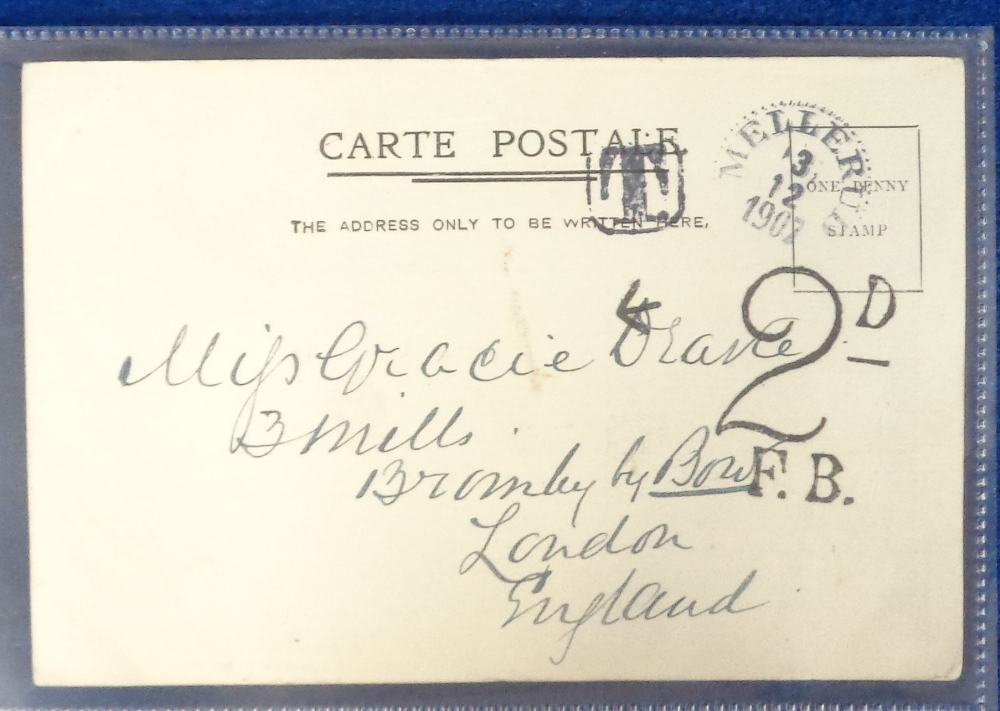 CARTE POSTALE.
T
L
MELLERUD
13
12
1907
ONE PENNY
STAMP
THE ADDRESS ONLY TO BE WRITTEN HERE,
4
2D
Miss Gracie Drake
3 Mills.
Bromby by Bow
F. B.
London
England